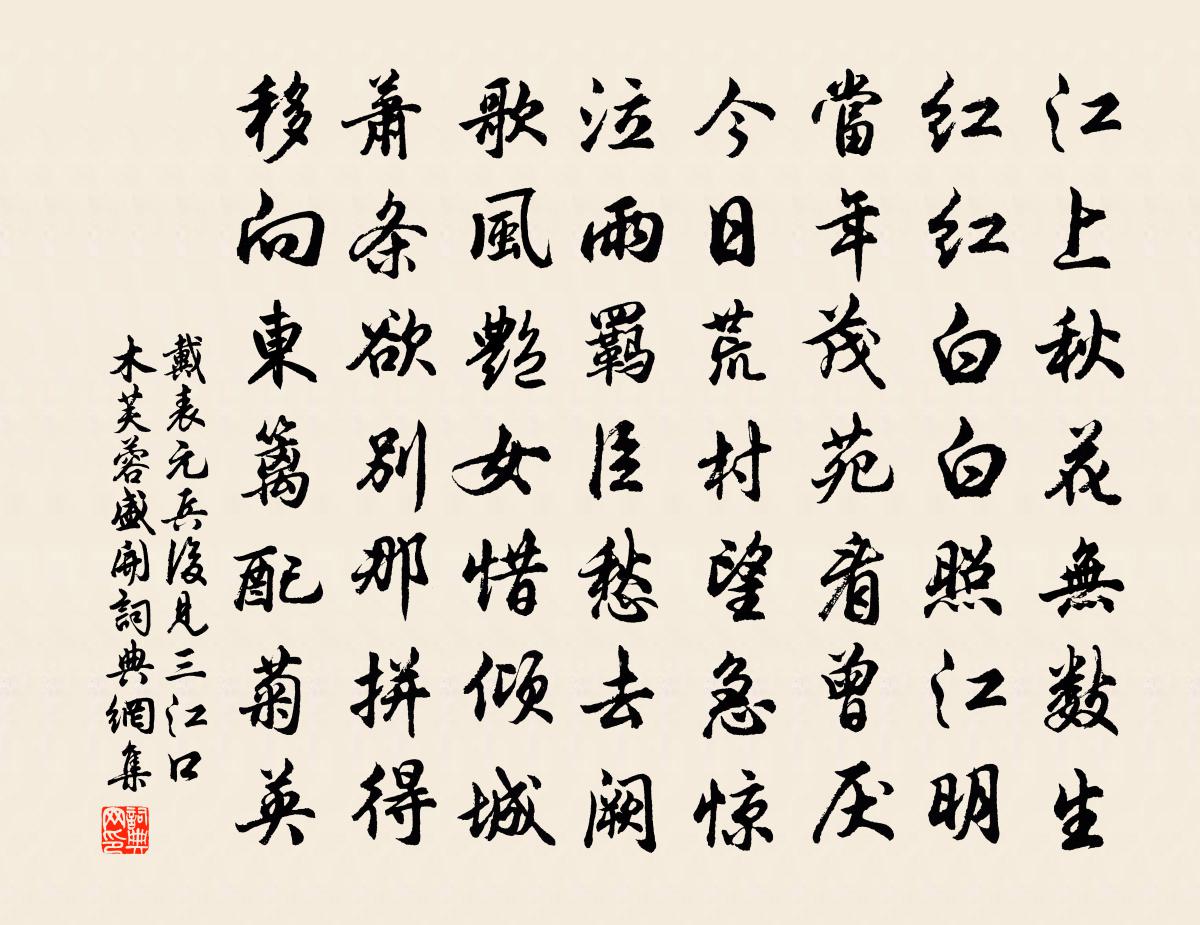 江上秋花無数生
红红白白照江明
當年茂苑看曾厌
今日荒村望急惊
泣雨羈臣愁去阙
歌風艷女惜倾城
萧条欲别那拼得
移向東籬配菊英
戴表元兵後見三江口
木芙蓉盛開詞典網集
詞典
网印